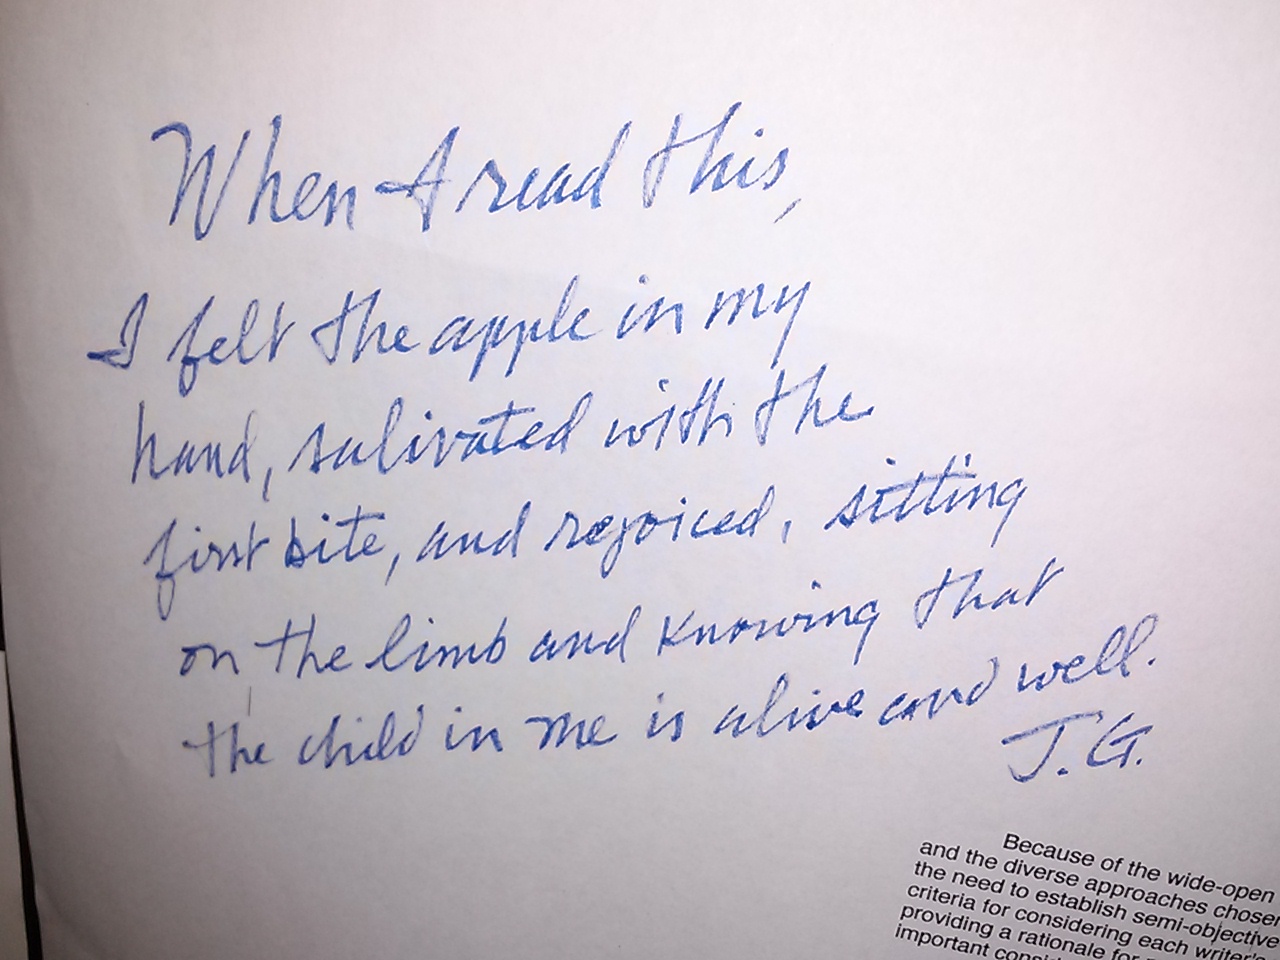 When I read this,
I felt the apple in my
hand, salivated with the
first bite, and rejoiced, sitting
on the limb and knowing that
the child in me is alive and well.
J.G.
Because of the wide-open
and the diverse approaches chosen
the need to establish semi-objective
criteria for considering each writer's
providing a rationale for
important